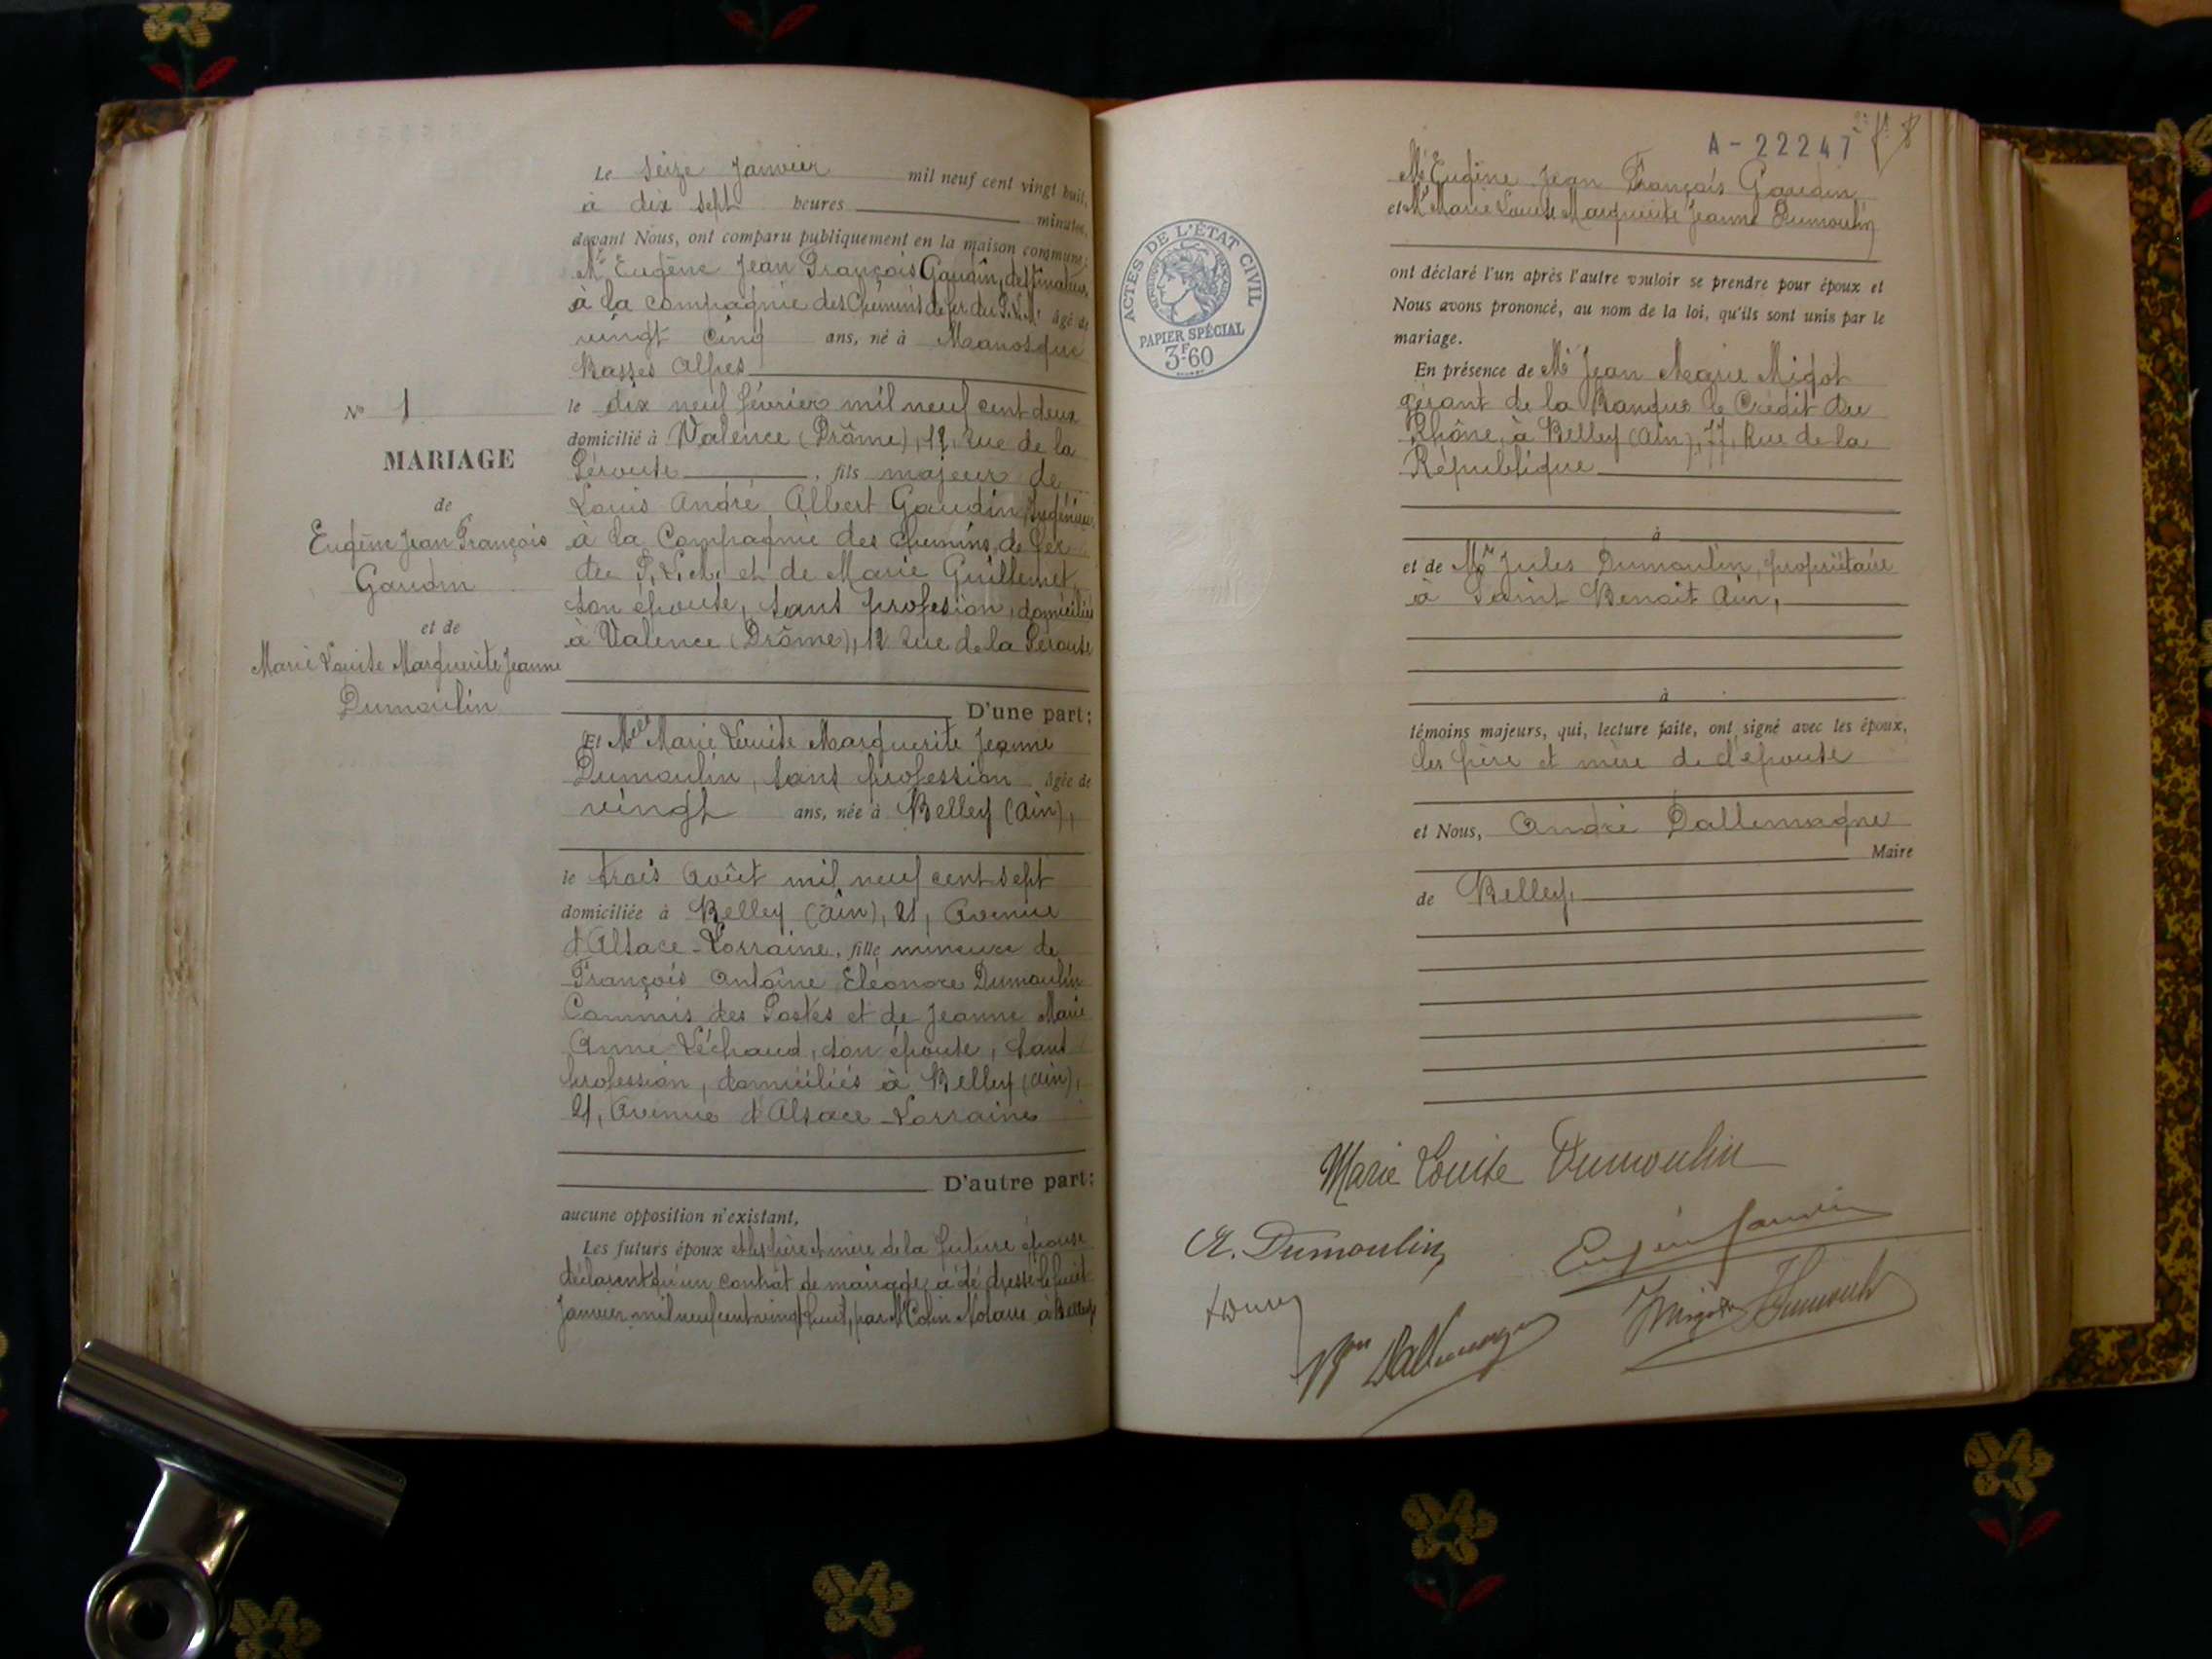 Le Seize Janvier mil neuf cent vingt huit,
à dix sept heures minutes,
devant Nous, ont comparu publiquement en la maison commune:
Mr Eugène Jean François Gaudin, dessinateur
à la compagnie des Chemins de fer du P.L.M. âgé de
vingt cinq ans, né à Manosque
Basses Alpes
le dix neuf février mil neuf cent deux
domicilié à Valence (Drôme), 12, Rue de la
Pérouse, fils majeur de
Louis André Albert Gaudin, Ingénieur
à la Compagnie des Chemins de fer
du P.L.M. et de Marie Guillemet
son épouse, sans profession, domiciliés
à Valence (Drôme), 12 Rue de la Pérouse
D'une part;
Nº 1
MARIAGE
de
Eugène Jean François
Gaudin
et de
Marie Louise Marguerite Jeanne
Dumoulin
Et Melle Marie Louise Marguerite Jeanne
Dumoulin, sans profession âgée de
vingt ans, née à Belley (Ain),
le trois Août mil neuf cent sept
domiciliée à Belley (Ain), 21, Avenue
d'Alsace-Lorraine, fille mineure de
François Antoine Eléonore Dumoulin
Commis des Postes et de Jeanne Marie
Anne Léchaud, son épouse, sans
profession, domiciliés à Belley (Ain),
21, Avenue d'Alsace-Lorraine
D'autre part;
aucune opposition n'existant,
Les futurs époux et les père et mère de la future épouse
déclarent qu'un contrat de mariage a été dressé le huit
Janvier mil neuf cent vingt huit, par Me Colin Notaire à Belley
A-22247
Mr Eugène Jean François Gaudin
et Mlle Marie Louise Marguerite Jeanne Dumoulin
ont déclaré l'un après l'autre vouloir se prendre pour époux et
Nous avons prononcé, au nom de la loi, qu'ils sont unis par le
mariage.
En présence de Mr Jean Marie Migot
gérant de la Banque le Crédit du
Rhône, à Belley (Ain), 77, Rue de la
République
à
et de Mr Jules Dumoulin, propriétaire
à Saint Benoit Ain,
à
témoins majeurs, qui, lecture faite, ont signé avec les époux,
les père et mère de l'épouse
et Nous, André Dallemagne
Maire
de Belley.
ACTES DE L'ÉTAT CIVIL
RÉPUBLIQUE FRANÇAISE
PAPIER SPÉCIAL
3F60
Marie Louise Dumoulin
A. Dumoulin
Eugène Gaudin
Migot
JDumoulin
Bon Dallemagne